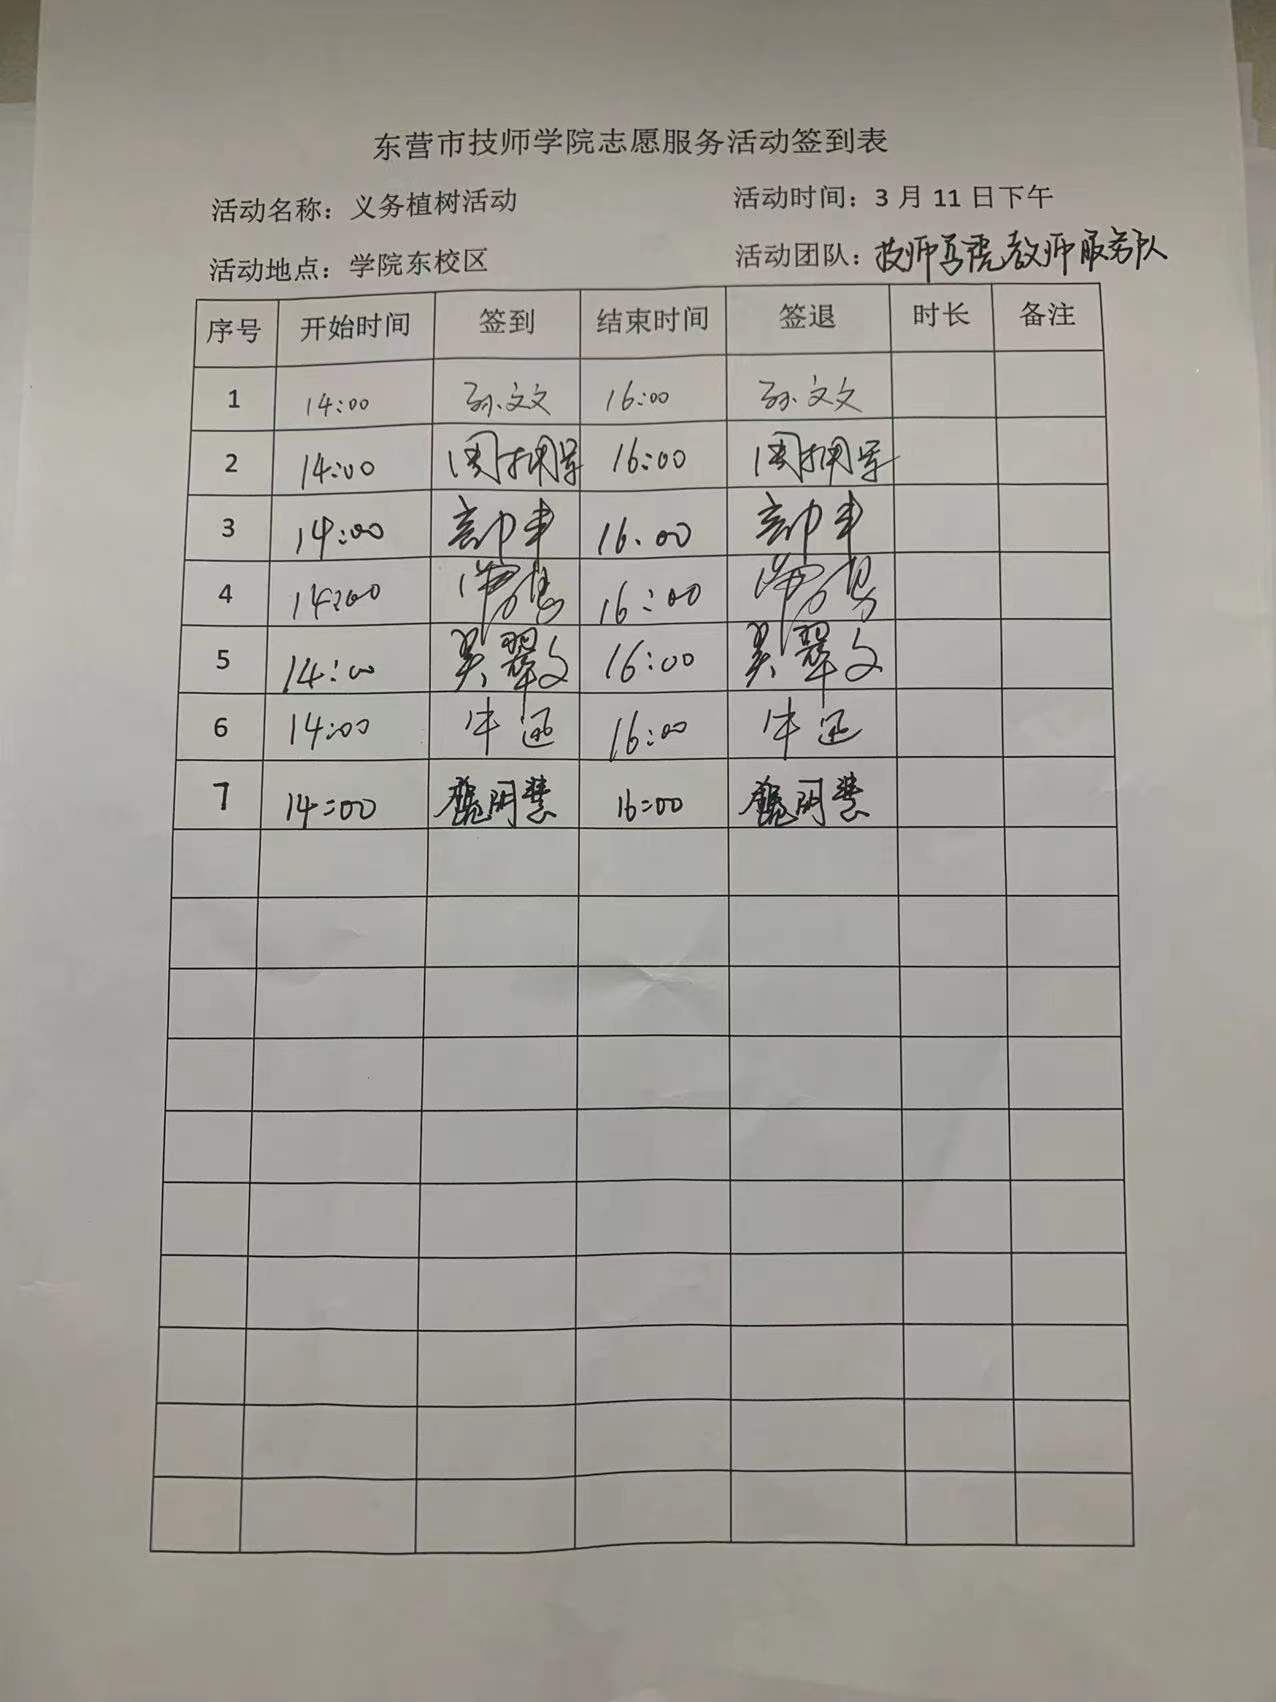 东营市技师学院志愿服务活动签到表
活动名称：义务植树活动 活动时间：3月11日下午
活动地点：学院东校区 活动团队：技师学院教师服务队
序号 开始时间 签到 结束时间 签退 时长 备注
1 14:00 孙文文 16:00 孙文文
2 14:00 周拥军 16:00 周拥军
3 14:00 16:00
4 14:00 16:00
5 14:00 吴翠文 16:00 吴翠文
6 14:00 牛迅 16:00 牛迅
7 14:00 魏明慧 16:00 魏明慧